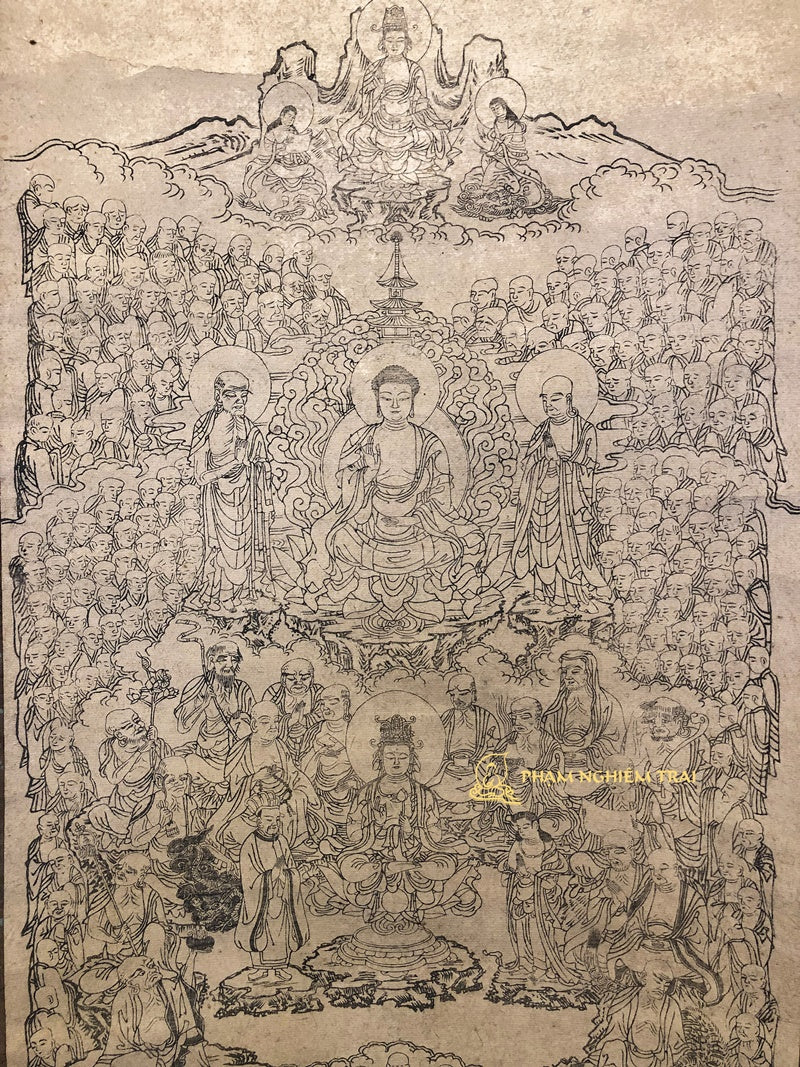 PHẠM NGHIÊM TRAI